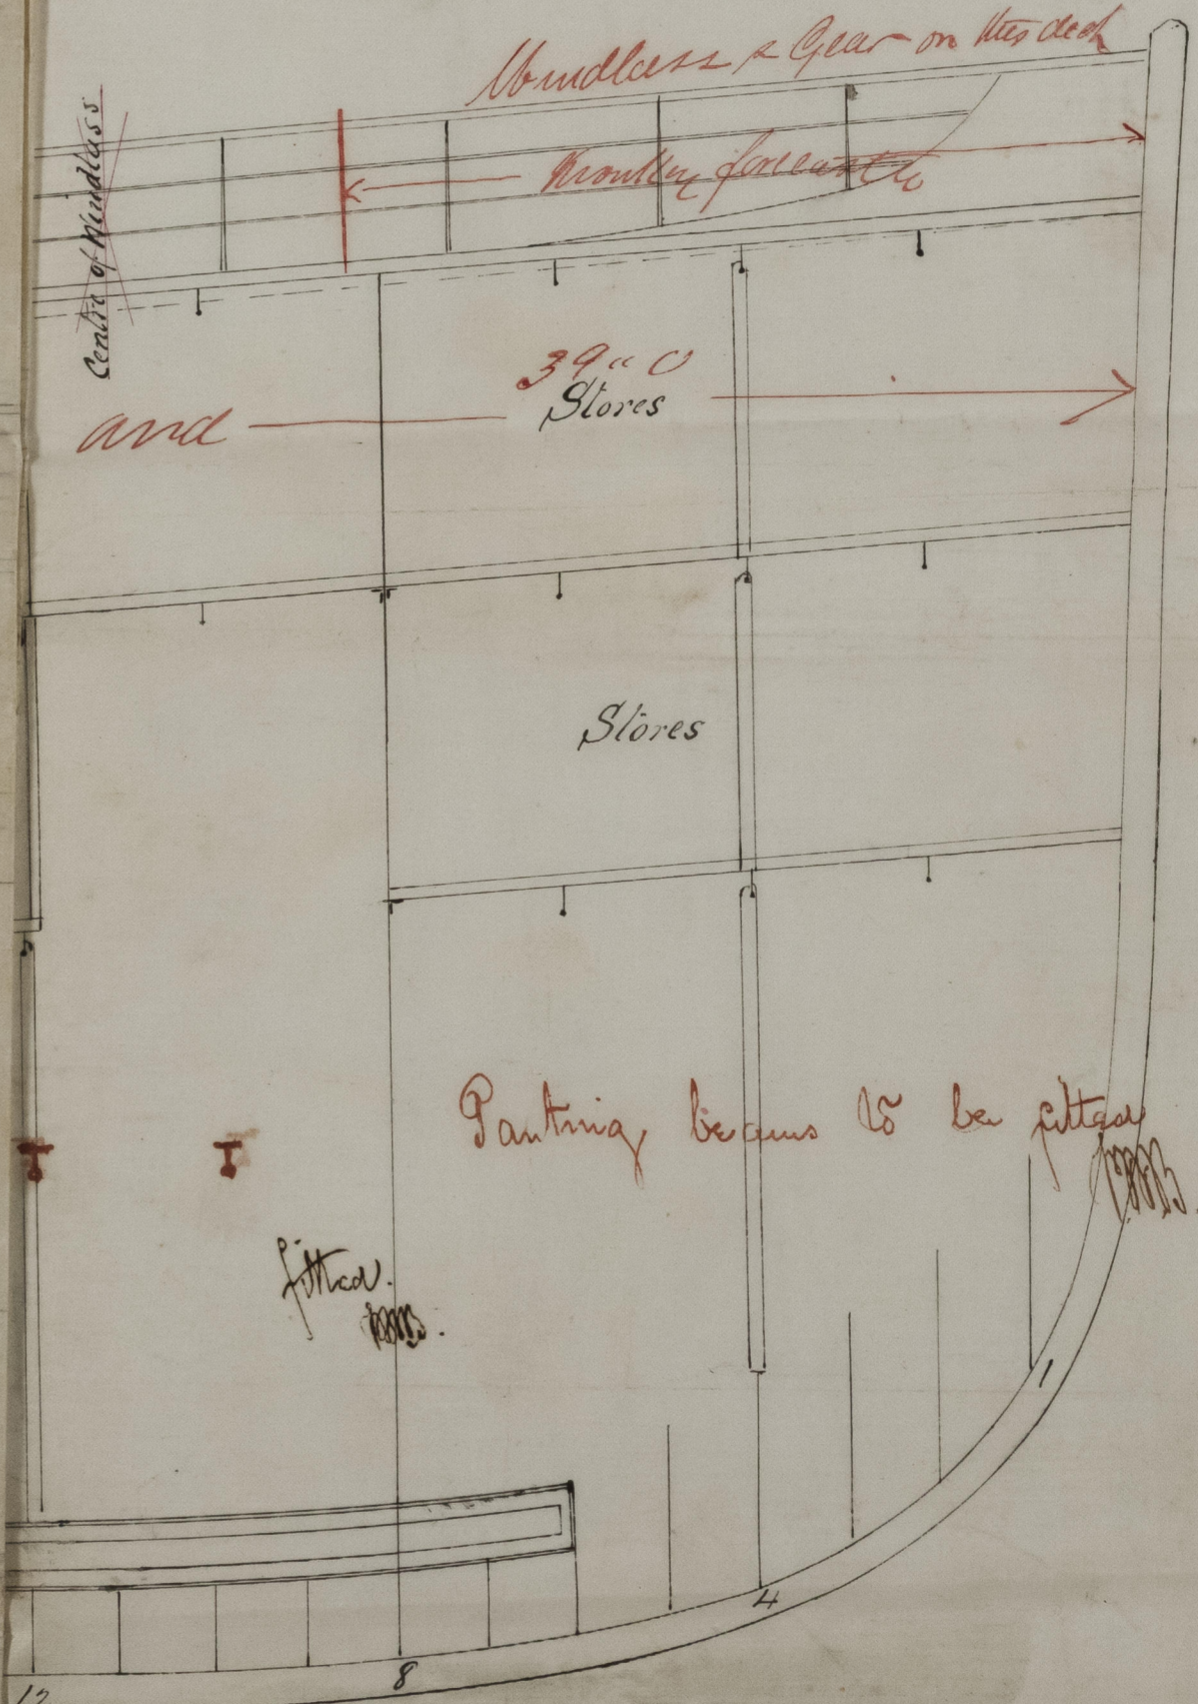 Windlass & Gear on this deck
Centre of Windlass
Monkey forecastle
39" 0
and
Stores
Stores
Panting beams to be fitted
fitted.
1
4
8
12